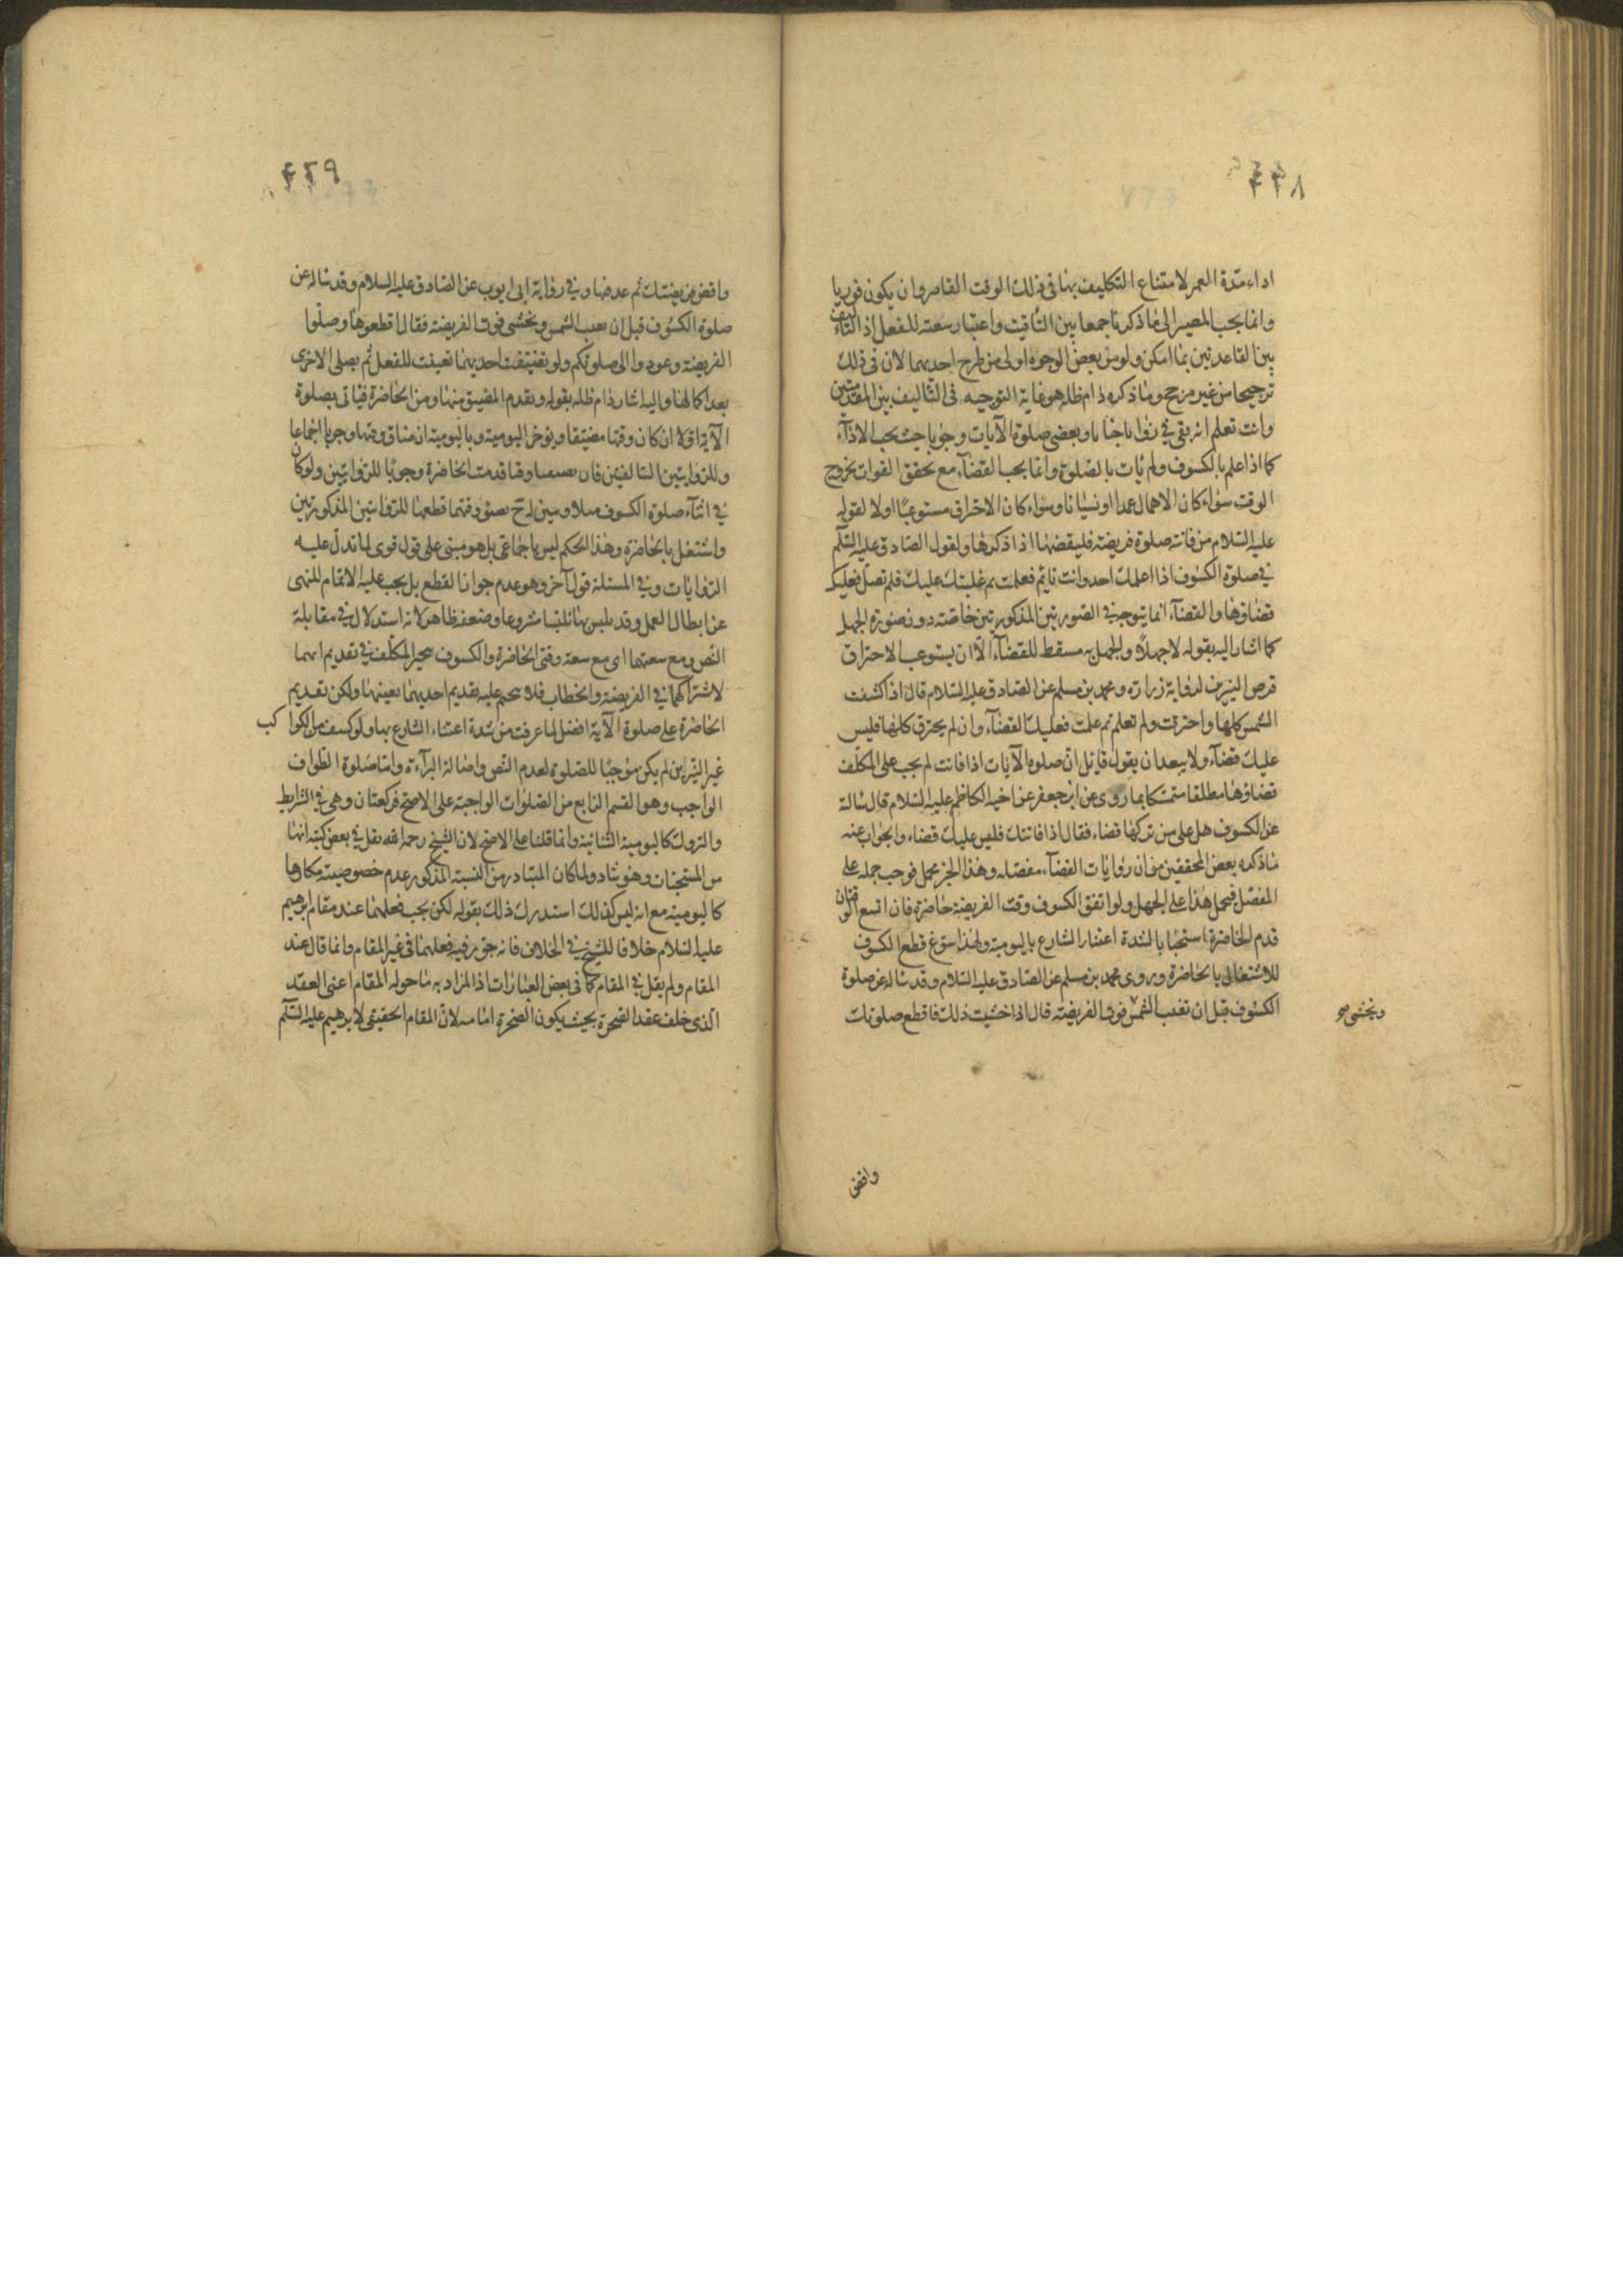 ۴۲۸
اداء مدة العمر لامتناع التكليف بها فى ذلك الوقت القاصر وان يكون فوريا
وانما يجب المصير الى ما ذكرنا جمعا بين التاقيت واعتبار سعته للفعل اذ التاليف
بين القاعدتين بما امكن ولو من بعض الوجوه اولى من طرح احديهما لان فى ذلك
ترجيحا من غير مرجح وما ذكره دام ظله هو غاية التوجيه فى التاليف بين المقدمتين
وانت تعلم انه بقى فى ويقضى صلوة الآيات وجوبا حيث يجب الاداء
كما اذا علم بالكسوف ولم يات بالصلوة وانما يجب القضاء مع تحقق الفوات بخروج
الوقت سواء كان الاهمال عمدا او نسيانا وسواء كان الاحتراق مستوعبا اولا لقوله
عليه السلام من فاتته صلوة فريضة فليقضها اذا ذكرها ولقول الصادق عليه السلم
فى صلوة الكسوف اذا اعلمك احد وانت نايم فعلمت ثم غلبتك عليك فلم تصل فعليك
قضاؤها والقضاء انما يتوجه فى الصورتين المذكورتين خاصة دون صورة الجهل
كما اشار اليه بقوله لا جهلا والجهل به مسقط للقضاء الا ان يستوعب الاحتراق
قرص النيرين لرواية زراره ومحمد بن مسلم عن الصادق عليه السلام قال اذا كسفت
الشمس كلها واحترقت ولم تعلم ثم علمت فعليك القضاء وان لم يحترق كلها فليس
عليك قضاء ولا يبعد ان يقول قايل ان صلوه الآيات اذا فاتت لم يجب على المكلف
قضاؤها مطلقا متمسكا بما روى عن ابن جعفر عن اخيه الكاظم عليه السلام قال سالة
عن الكسوف هل على من تركها قضاء فقال اذا فاتتك فليس عليك قضاء والجواب عنه
ما ذكره بعض المحققين من ان روايات القضاء مفصله وهذا الخبر مجمل فوجب حمله على
المفصل فيحمل هذا على الجهل ولو اتفق الكسوف وقت الفريضة حاضرة فان اتسع الوقتان
قدم الحاضرة استحبابا لشدة اعتناء الشارع باليومية ولهذا سوغ قطع الكسوف
للاشتغال بالحاضرة وروى محمد بن مسلم عن الصادق عليه السلام وقد ساله عن صلوة
الكسوف قبل ان تغيب الشمس فوت الفريضة قال اذا خشيت ذلك فاقطع صلوتك
ويخشى صح
واقض
۴۲۹
واقض فريضتك ثم عد فيها وفى رواية ابى ايوب عن الصادق عليه السلام وقد ساله عن
صلوة الكسوف قبل ان تغيب الشمس ونخشى فوت الفريضة فقال اقطعوها وصلوا
الفريضة وعودوا الى صلوتكم ولو تضيقت احديهما تعينت للفعل ثم يصلى الاخرى
بعد اكمالها واليه اشار دام ظله بقوله ويقدم المضيق منها ومن الحاضرة فياتى بصلوة
الآية اولا ان كان وقتها مضيقا ويؤخر اليومية وباليومية ان ضاق وقتها وجوبا اجماعا
وللروايتين السالفتين فان تضيقا وقتا قدمت الحاضرة وجوبا للروايتين ولو كان
فى اثناء صلوة الكسوف مثلا وتبين له ح ضيق وقتهما قطعها للروايتين المذكورتين
واشتغل بالحاضرة وهذا الحكم ليس باجماعى بل هو مبنى على قول قوى لما تدل عليه
الروايات وفى المسئلة قول آخر وهو عدم جواز القطع بل يجب عليه الاتمام للنهى
عن ابطال العمل وقد تلبس بها تلبسا مشروعا وضعفه ظاهر لانه استدلال فى مقابلة
النص ومع سعتهما اى مع سعة وقتى الحاضرة والكسوف يتخير المكلف فى تقديم ايهما
لاشتراكهما فى الفريضة والخطاب فلا يتحتم عليه تقديم احديهما بعينها ولكن تقديم
الحاضرة على صلوة الآية افضل لما عرفت من شدة اعتناء الشارع بها ولو كسف من الكواكب
غير النيرين لم يكن موجبا للصلوة لعدم النص واصالة البرآءة واما صلوة الطواف
الواجب وهو القسم الرابع من الصلوات الواجبة على الاصح فركعتان وهى فى الشرايط
والتروك كاليومية الثنائية وانما قلنا على الاصح لان الشيخ رحمه الله نقل فى بعض كتبه انها
من المستحبات وهو شاذ ولما كان المتبادر من النسبة المذكور عدم خصوصيته مكانها
كاليومية مع انه ليس كذلك استدرك ذلك بقوله لكن يجب فعلهما عند مقام ابرهيم
عليه السلام خلافا للشيخ فى الخلاف فانه جوز فيه فعلهما فى غير المقام وانما قال عند
المقام ولم يقل فى المقام كما فى بعض العبارات اذ المراد به ما حوله المقام اعنى العقد
الذى خلف عقد الصخرة بحيث يكون الصخرة امامه لان المقام الحقيقى لابرهيم عليه السلم